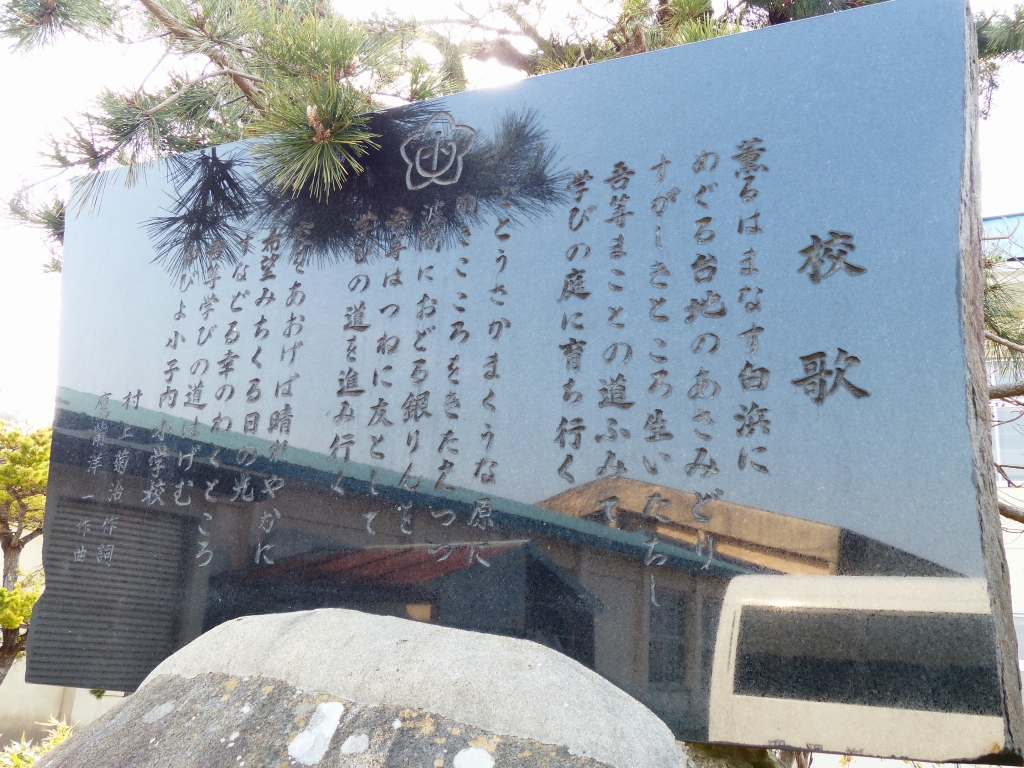 校歌
薫るはまなす白浜に
めぐる台地のあさみどり
すがしきところ生いたちし
吾等まことの道ふみて
学びの庭に育ち行く
どとうさかまくうな原に
きこころをきたえつつ
波間におどる銀りんを
吾等はつねに友として
学びの道を進み行く
あおげば晴れやかに
希望みちくる日の光
すなどる幸のわくところ
吾等学びの道はげむ
びよ小子内小学校
村上菊治 作詞
鷹觜洋一 作曲
小